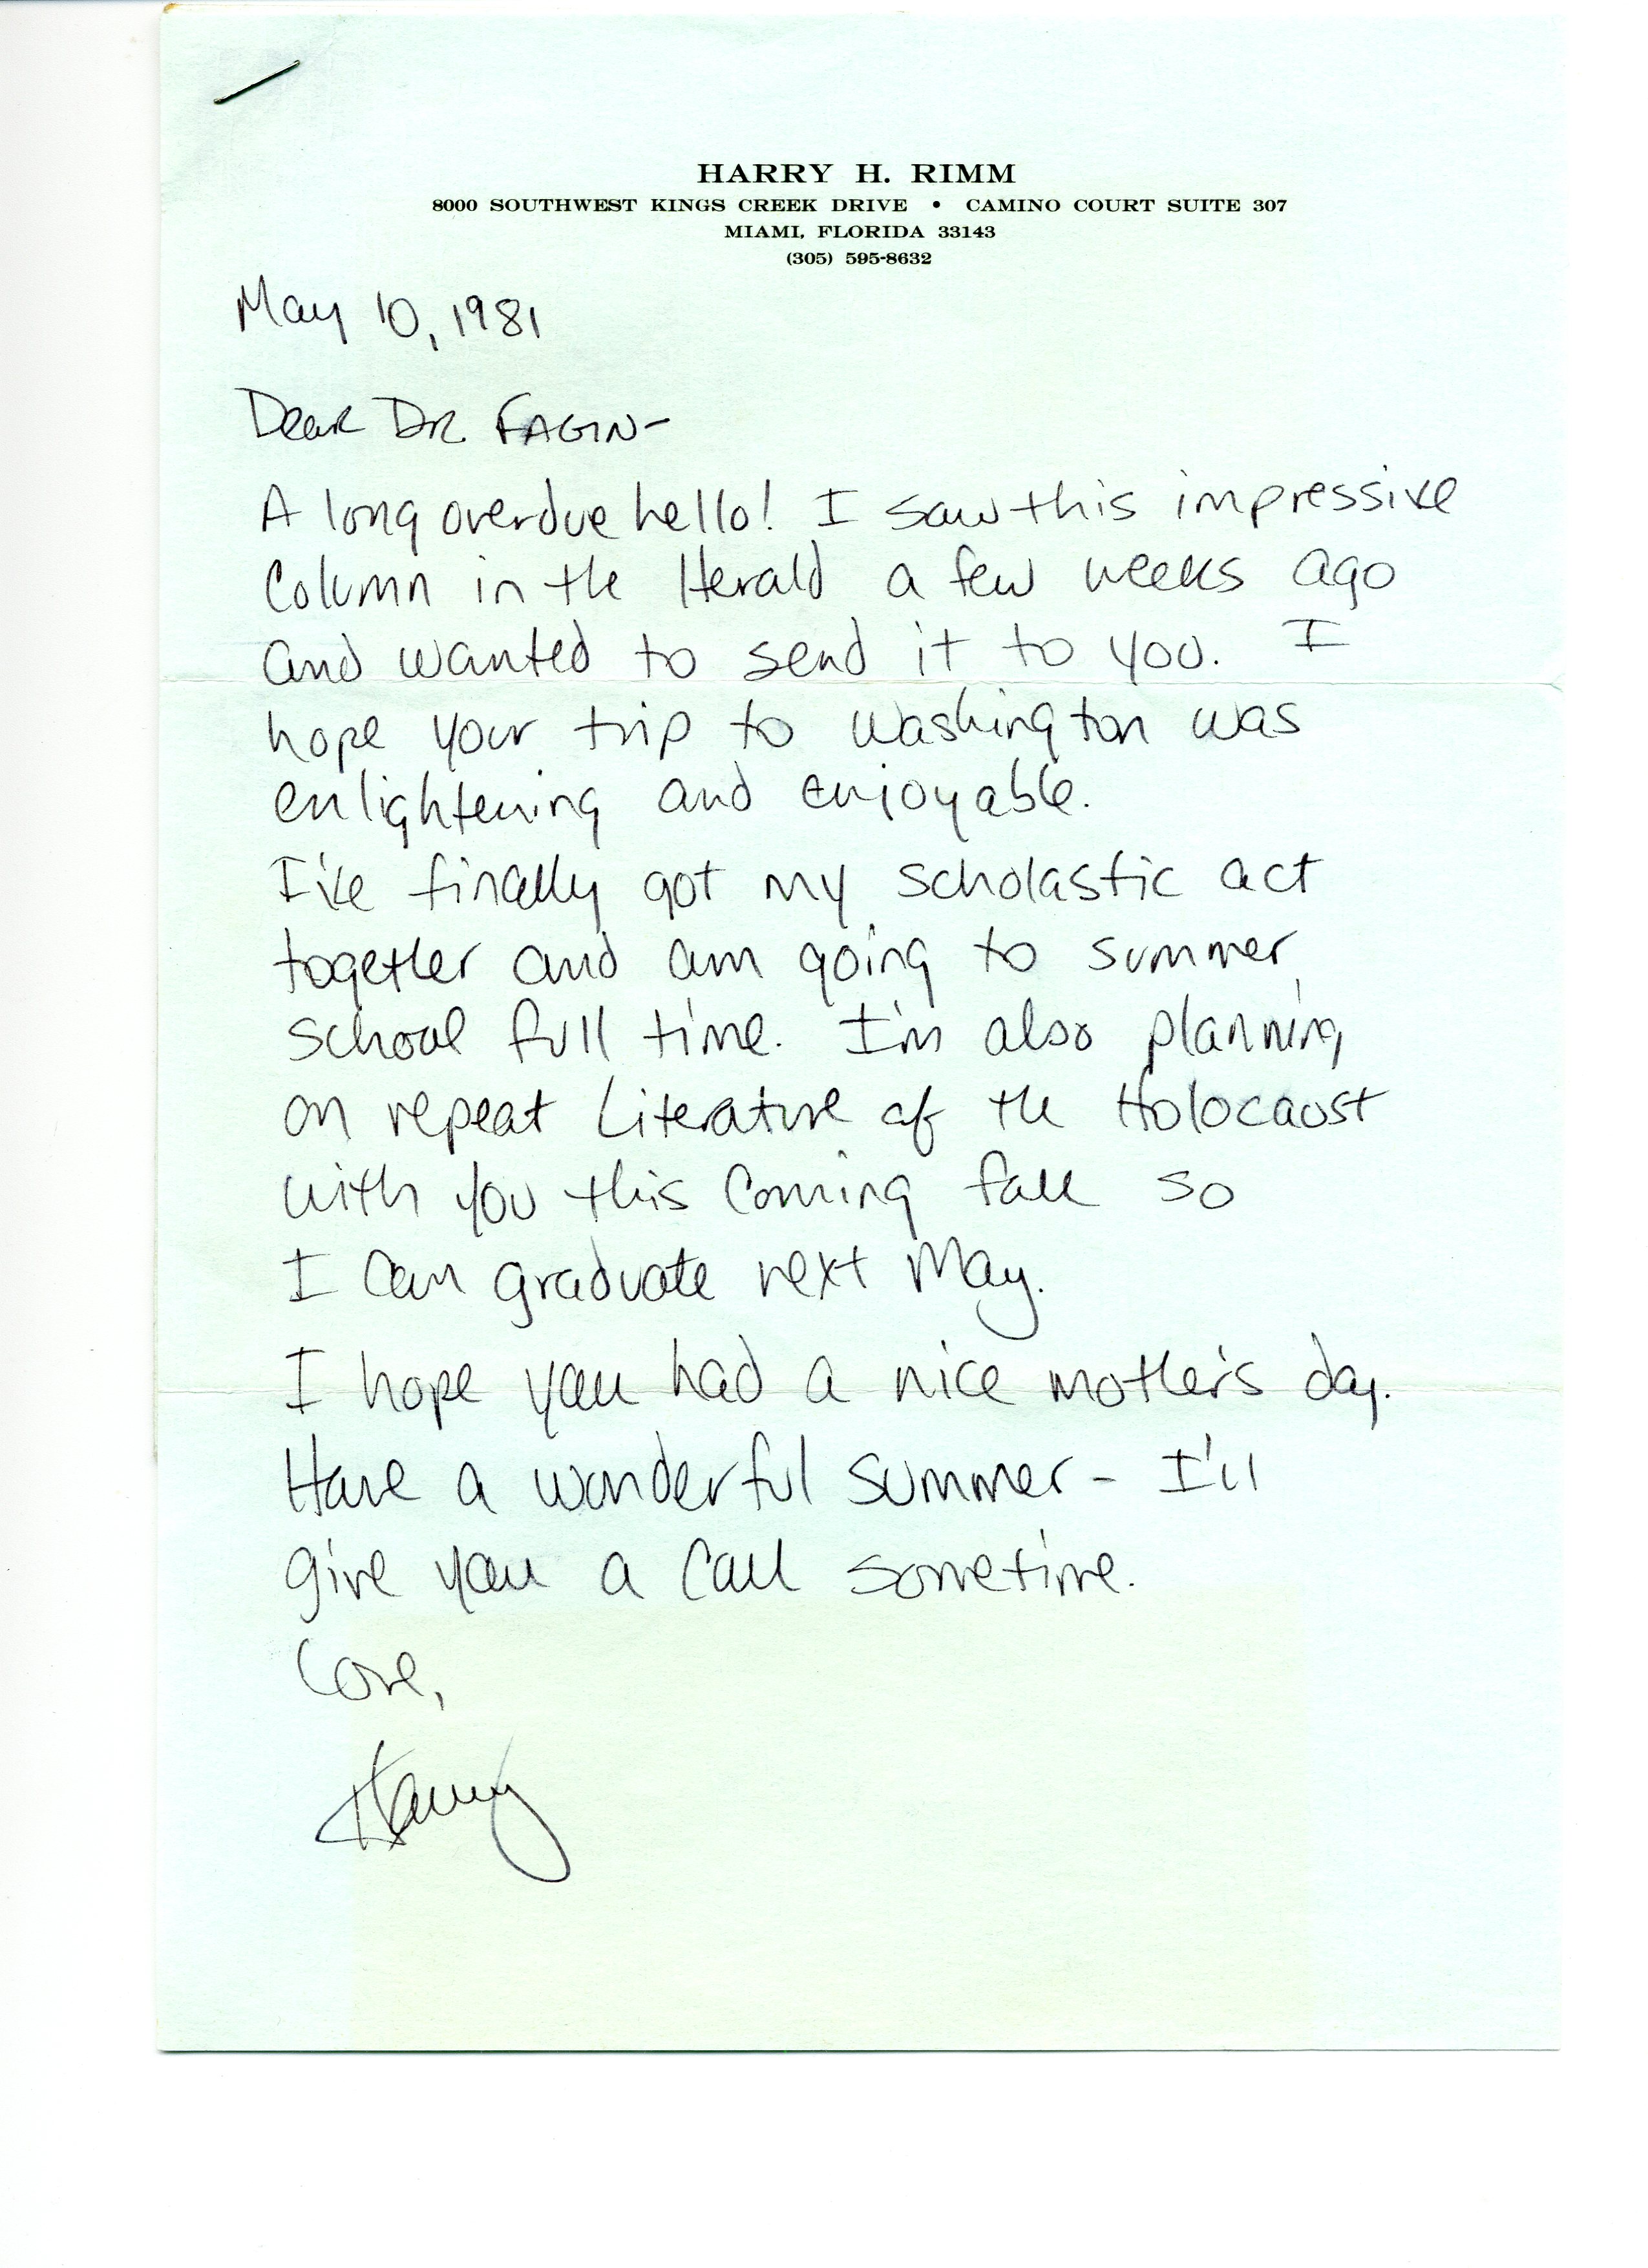 HARRY H. RIMM
8000 SOUTHWEST KINGS CREEK DRIVE • CAMINO COURT SUITE 307
MIAMI, FLORIDA 33143
(305) 595-8632
May 10, 1981
Dear DR. FAGIN-
A long overdue hello! I saw this impressive
Column in the Herald a few weeks ago
and wanted to send it to you. I
hope your trip to Washington was
enlightening and enjoyable.
I've finally got my scholastic act
together and am going to summer
school full time. I'm also planning
on repeat Literature of the Holocaust
with you this coming fall so
I can graduate next May.
I hope you had a nice mother's day.
Have a wonderful summer - I'll
give you a call sometime.
Love,
Harry